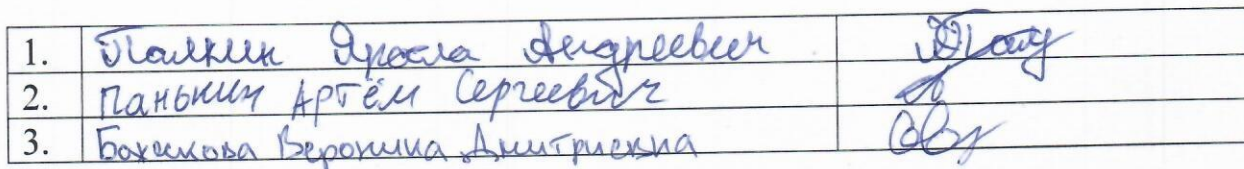 1. Палкин Яросла Андреевич
2. Панькин Артём Сергеевич
3. Божакова Вероника Дмитриевна